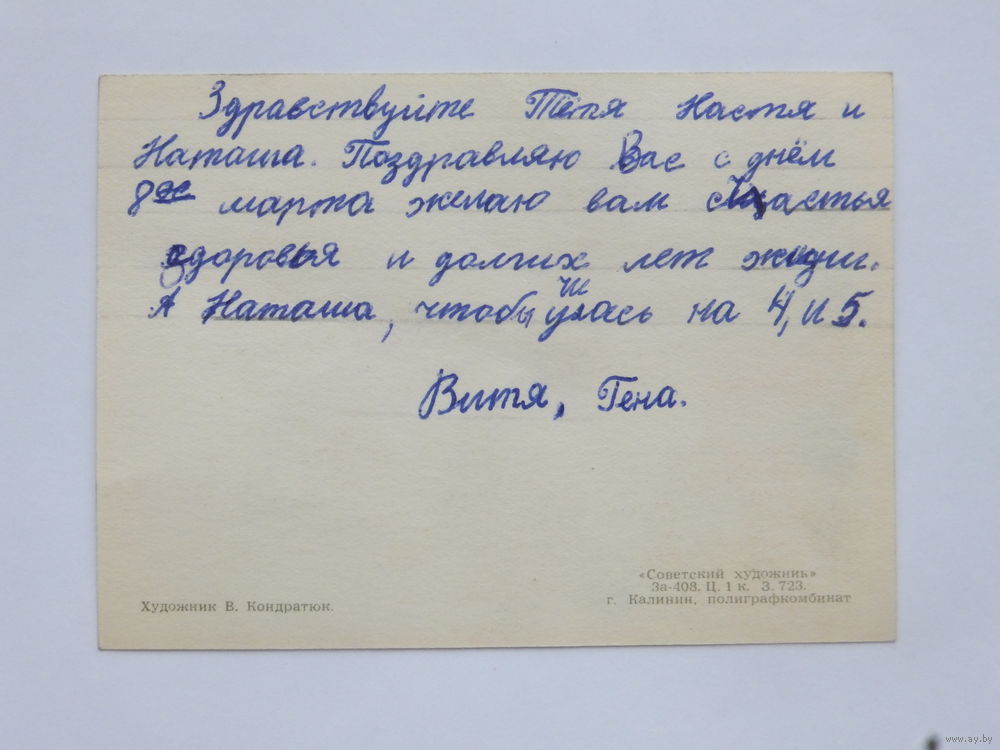 Здравствуйте Тётя Настя и
Наташа. Поздравляю Вас с днём
8ое марта желаю вам счастья
здоровья и долгих лет жизни.
А Наташа, чтобы училась на 4, и 5.
Витя, Гена.
Художник В. Кондратюк.
«Советский художник»
За-408. Ц. 1 к. З. 723.
г. Калинин, полиграфкомбинат
www.ay.by